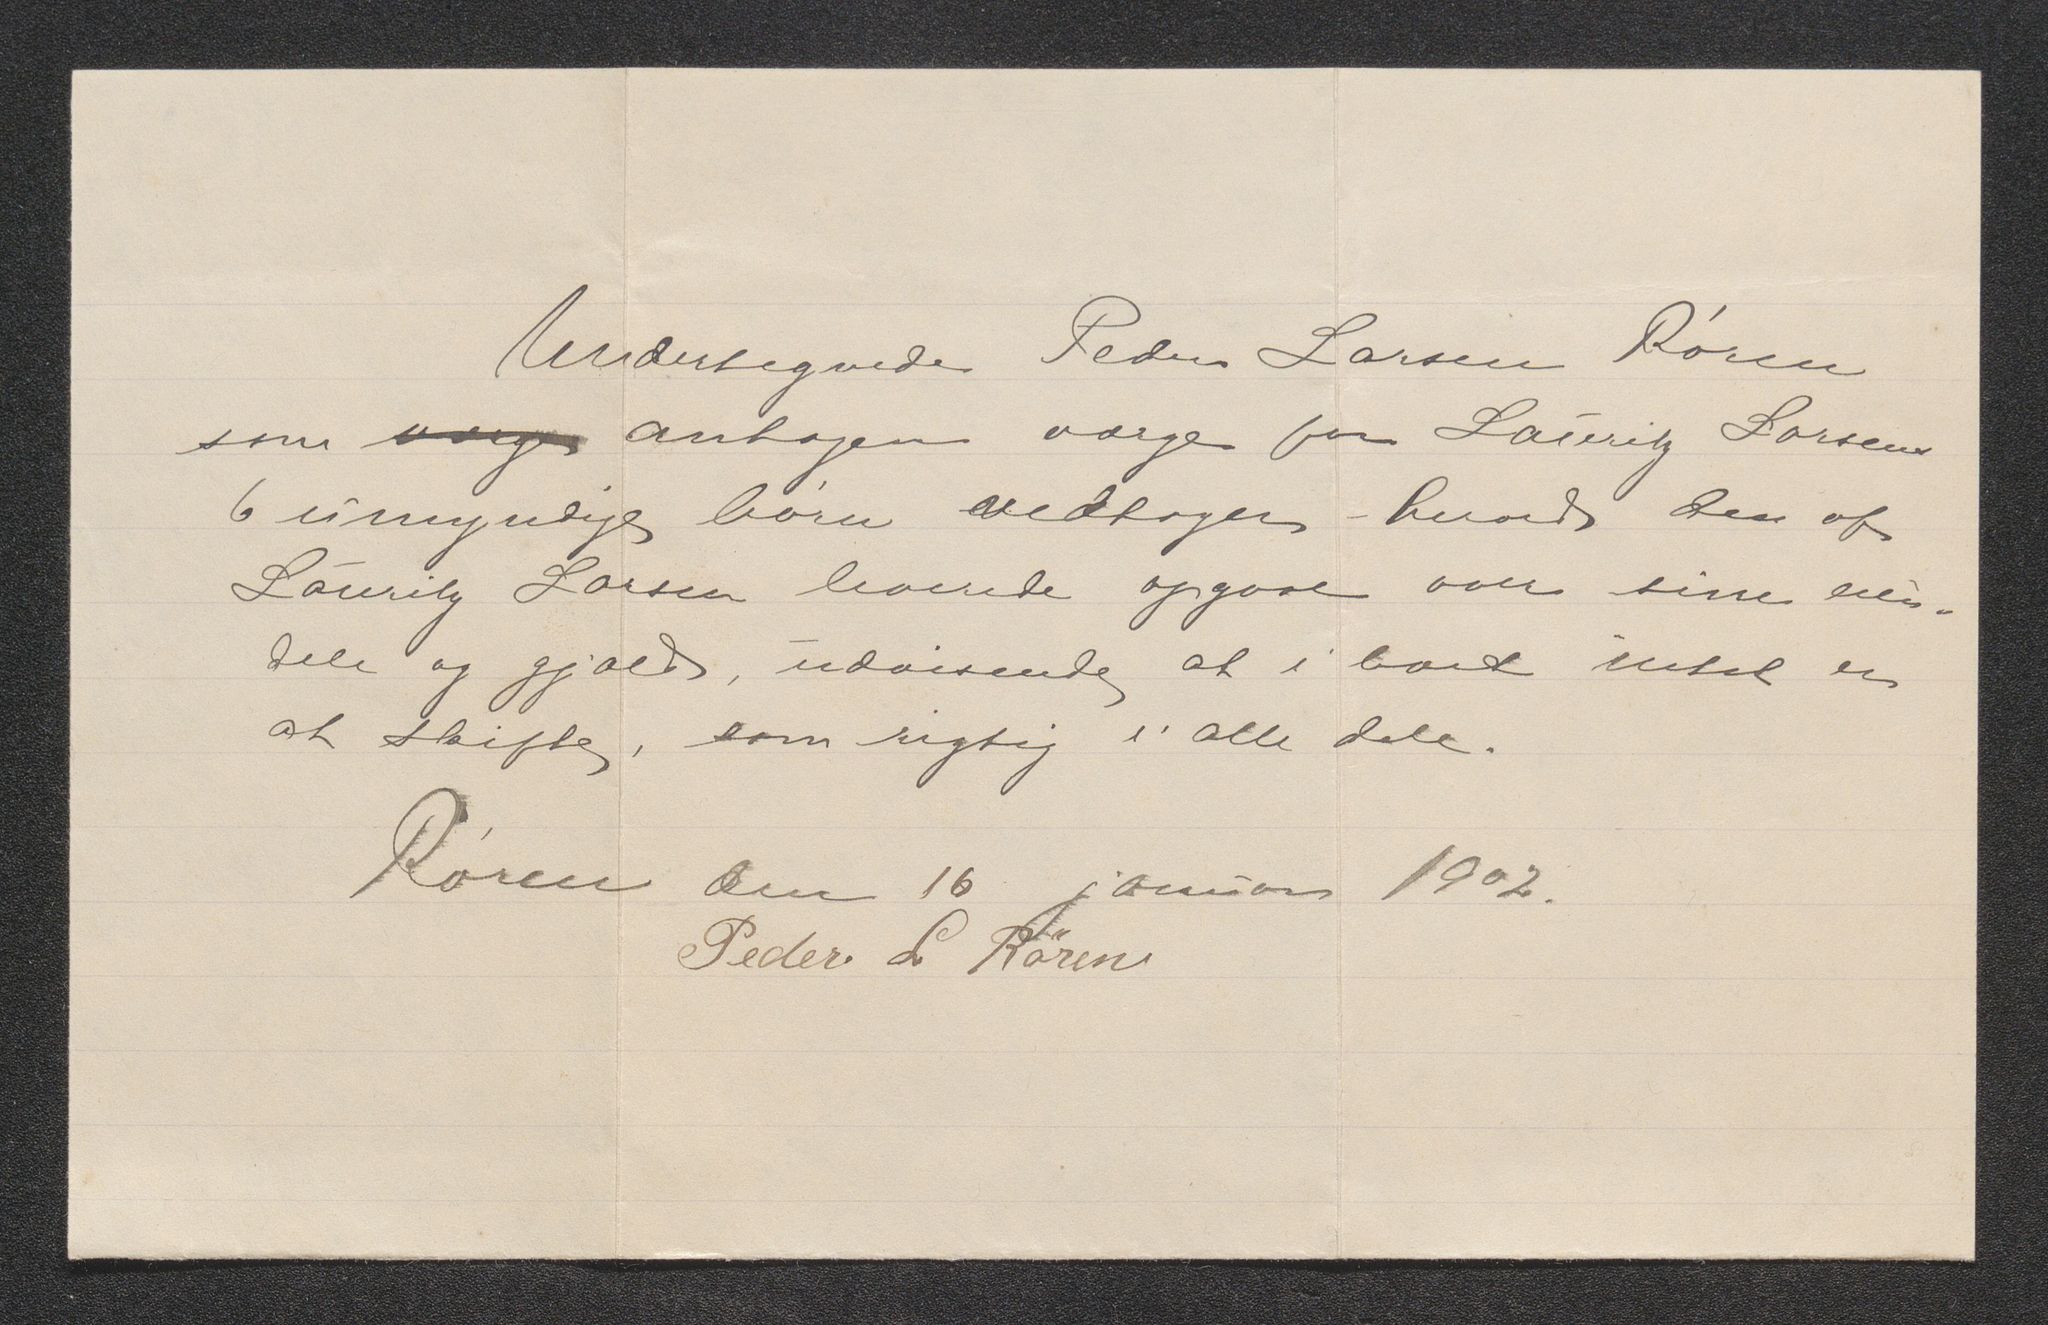 Undertegnede Peder Larsen Røren
som værge antagen værge for Lauritz Larsens
6 umyndige børn vedtager herved den af
Lauritz Larsen leverede opgave over sine eien-
dele og gjæld, udvisende at i boet intet er
at skifte, som rigtig i alle dele.
Røren den 16 januar 1902.
Peder L Rören